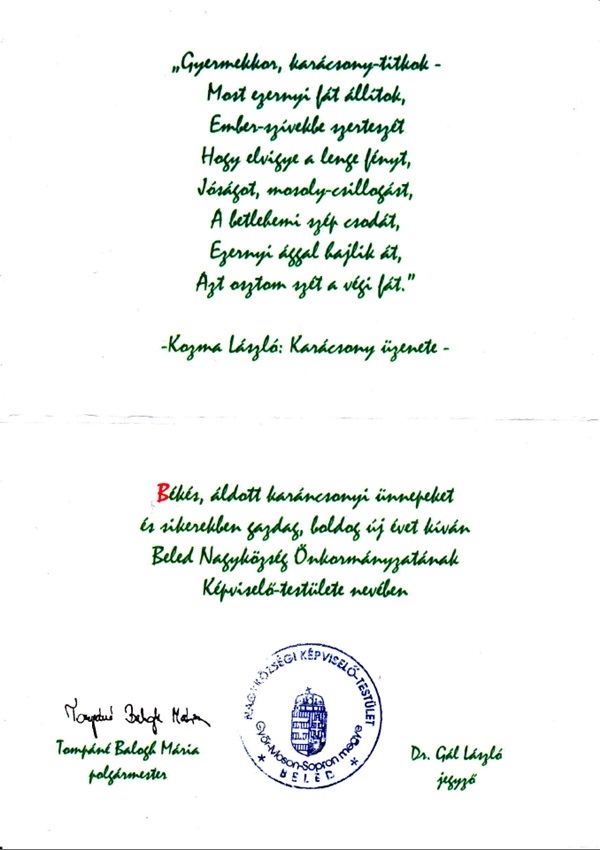 „Gyermekkor, karácsony-titkok -
Most ezernyi fát állítok,
Ember-szívekbe szerteszét
Hogy elvigye a lenge fényt,
Jóságot, mosoly-csillogást,
A betlehemi szép csodát,
Ezernyi ággal hajlik át,
Azt osztom szét a végi fát."
-Kozma László: Karácsony üzenete -
Békés, áldott karáncsonyi ünnepeket
és sikerekben gazdag, boldog új évet kíván
Beled Nagyközség Önkormányzatának
Képviselő-testülete nevében
NAGYKÖZSÉGI KÉPVISELŐ-TESTÜLET
Győr-Moson-Sopron megye
* BELED *
Tompáné Balogh Mária
Tompáné Balogh Mária
polgármester
Dr. Gál László
jegyző